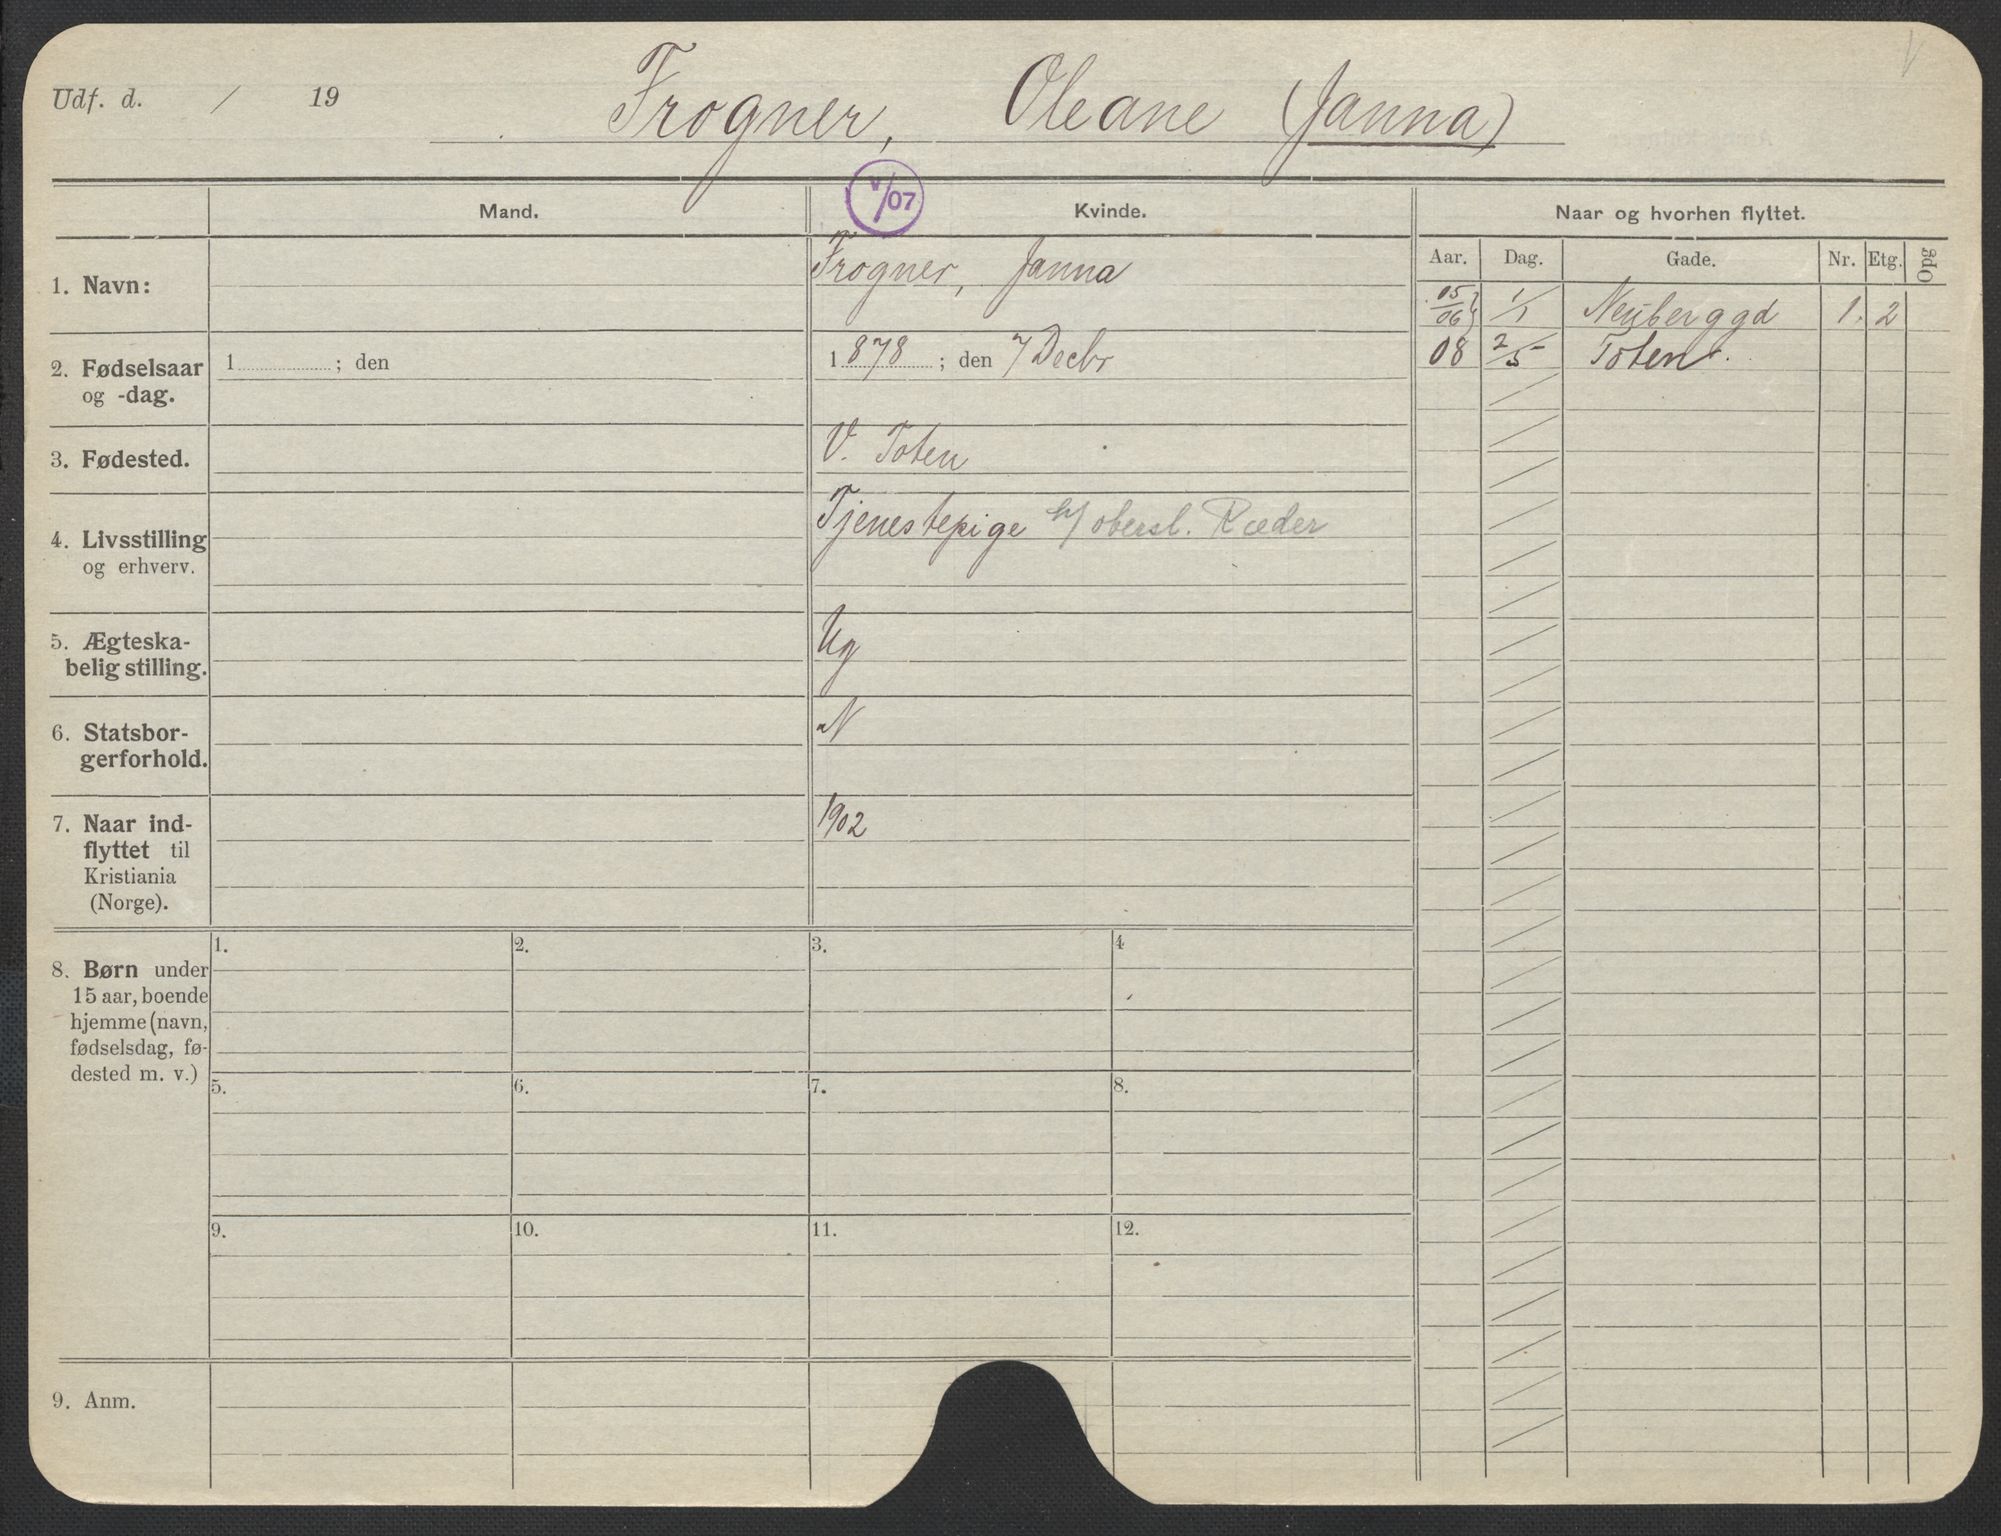 Udf. d. / 19
Frogner, Oleane (Janna)
V/07
Mand.
Kvinde.
Naar og hvorhen flyttet.
Aar. Dag. Gade. Nr. Etg. Opg
1. Navn:
Frogner, Janna
05/06 1/1 Neuberggd 1. 2
2. Fødselsaar og -dag.
1 ; den
1 878 ; den 7 Decbr
08 2/5 Toten.
3. Fødested.
V. Toten
4. Livsstilling og erhverv.
Tjenestepige h/ oberstl. Ræder
5. Ægteska-
belig stilling.
Ug
6. Statsbor-
gerforhold.
N
7. Naar ind-
flyttet til
Kristiania
(Norge).
1902
8. Børn under
15 aar, boende
hjemme (navn,
fødselsdag, fø-
dested m. v.)
1. 2. 3. 4
5. 6. 7. 8.
9. 10. 11. 12.
9. Anm.